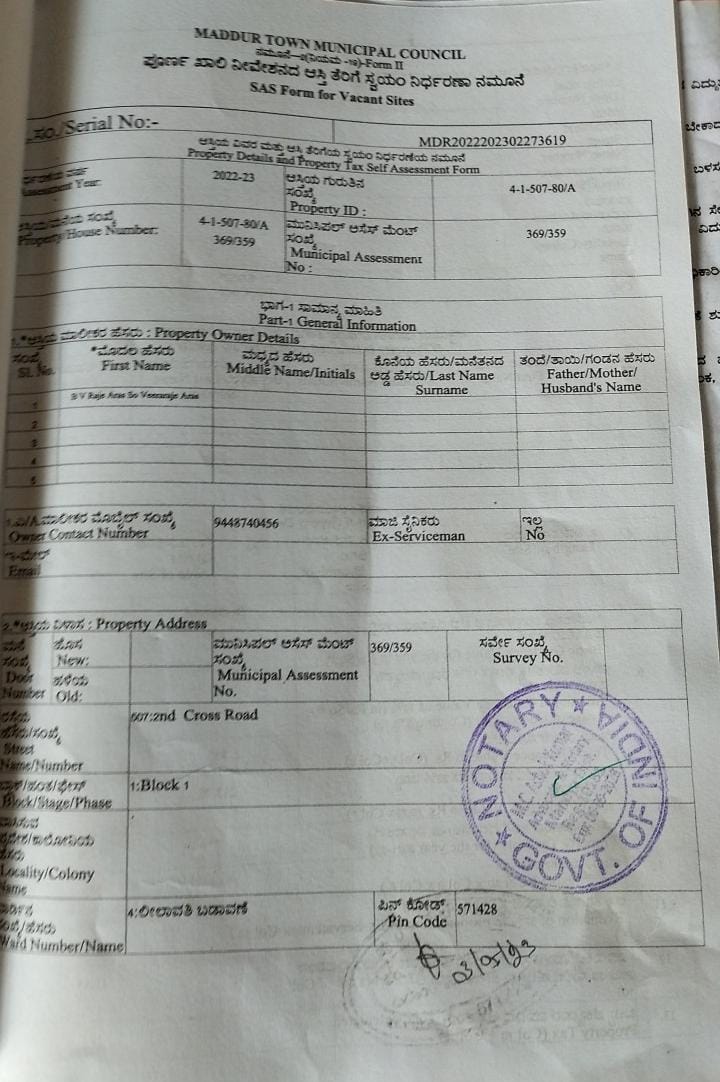 MADDUR TOWN MUNICIPAL COUNCIL
ನಮೂನೆ-೨(ನಿಯಮ -೫)-Form II
ಪೂರ್ಣ ಖಾಲಿ ನಿವೇಶನದ ಆಸ್ತಿ ತೆರಿಗೆ ಸ್ವಯಂ ನಿರ್ಧರಣಾ ನಮೂನೆ
SAS Form for Vacant Sites
ಸಂ./Serial No:- MDR2022202302273619
ಆಸ್ತಿಯ ವಿವರ ಮತ್ತು ಆಸ್ತಿ ತೆರಿಗೆಯ ಸ್ವಯಂ ನಿರ್ಧರಣೆಯ ನಮೂನೆ
Property Details and Property Tax Self Assessment Form
Assessment Year: 2022-23 ಆಸ್ತಿಯ ಗುರುತಿನ ಸಂಖ್ಯೆ Property ID : 4-1-507-80/A
ಆಸ್ತಿಯ/ಮನೆಯ ಸಂಖ್ಯೆ Property/House Number: 4-1-507-80/A 369/359 ಮುನಿಸಿಪಲ್ ಆಸೆಸ್ ಮೆಂಟ್ ಸಂಖ್ಯೆ Municipal Assessment No : 369/359
ಭಾಗ-1 ಸಾಮಾನ್ಯ ಮಾಹಿತಿ
Part-1 General Information
1.*ಆಸ್ತಿಯ ಮಾಲೀಕರ ಹೆಸರು : Property Owner Details
ಸಂಖ್ಯೆ Sl. No. *ಮೊದಲ ಹೆಸರು First Name ಮಧ್ಯದ ಹೆಸರು Middle Name/Initials ಕೊನೆಯ ಹೆಸರು/ಮನೆತನದ ಅಡ್ಡ ಹೆಸರು/Last Name Surname ತಂದೆ/ತಾಯಿ/ಗಂಡನ ಹೆಸರು Father/Mother/ Husband's Name
1 B V Raje Aras So Veeraraje Aras
2
3
4
5
1.ಎ/A.ಮಾಲೀಕರ ಮೊಬೈಲ್ ಸಂಖ್ಯೆ Owner Contact Number 9448740456 ಮಾಜಿ ಸೈನಿಕರು Ex-Serviceman ಇಲ್ಲ No
ಇ-ಮೇಲ್ Email
2.*ಆಸ್ತಿಯ ವಿಳಾಸ : Property Address
ಮನೆ ಸಂಖ್ಯೆ Door Number ಹೊಸ New: ಹಳೆಯ Old: ಮುನಿಸಿಪಲ್ ಆಸೆಸ್ ಮೆಂಟ್ ಸಂಖ್ಯೆ Municipal Assessment No. 369/359 ಸರ್ವೇ ಸಂಖ್ಯೆ Survey No.
ರಸ್ತೆಯ ಹೆಸರು/ಸಂಖ್ಯೆ Street Name/Number 507:2nd Cross Road
Block/Stage/Phase 1:Block 1
Locality/Colony Name
Ward Number/Name 4:ಲೀಲಾವತಿ ಬಡಾವಣೆ ಪಿನ್ ಕೋಡ್: Pin Code 571428
NOTARY ★ GOVT. OF INDIA ★
03/05/23